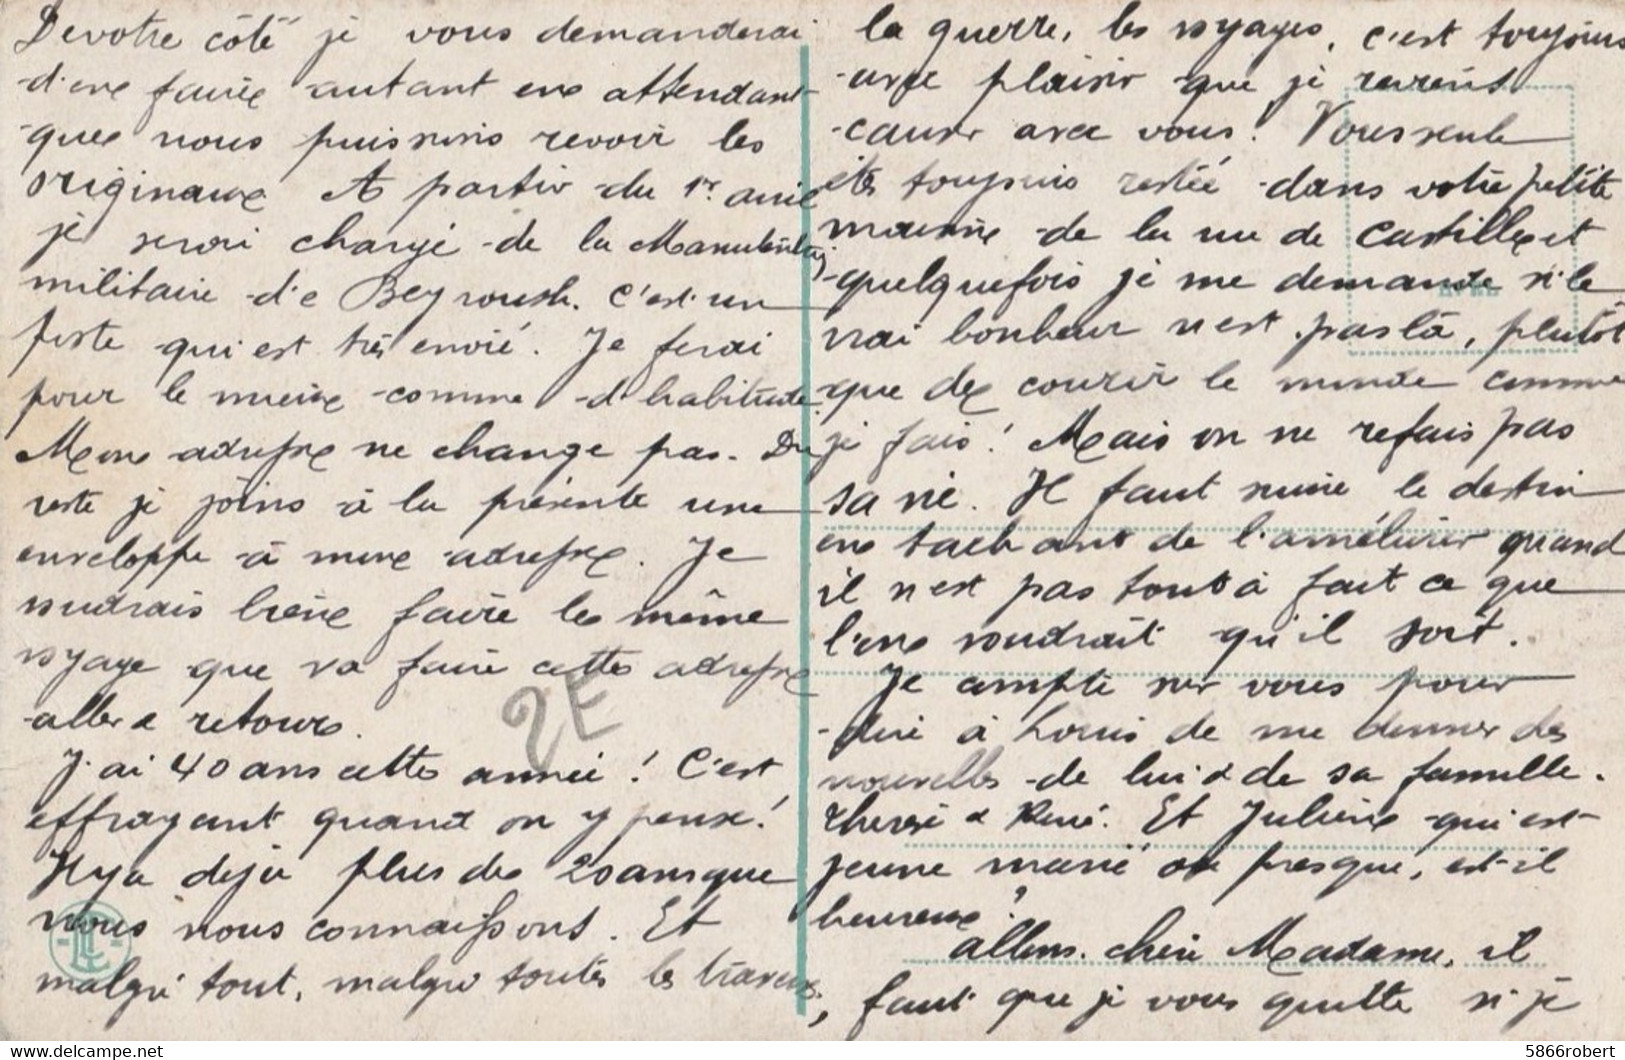 De votre côté je vous demanderai
d'en faire autant en attendant
que nous puissions revoir les
originaux A partir du 1er avril
je serai chargé de la Manutention
militaire de Beyrouth. C'est un
poste qui est très envié. Je ferai
pour le mieux comme d'habitude.
Mon adresse ne change pas. Du
reste je joins à la présente une
enveloppe à mon adresse. Je
voudrais bien faire le même
voyage que va faire cette adresse
aller & retour.
J'ai 40 ans cette année! C'est
effrayant quand on y pense!
Il y a déjà plus de 20 ans que
nous nous connaissons. Et
malgré tout, malgré toutes les travaux,
2E
LL
la guerre, les voyages, c'est toujours
avec plaisir que je reviens
causer avec vous! Vous seule
êtes toujours restée dans votre petite
maison de la rue de Castille et
quelquefois je me demande si le
vrai bonheur n'est pas là, plutôt
que de courir le monde comme
je fais! Mais on ne refait pas
sa vie. Il faut suivre le destin
en tachant de l'améliorer quand
il n'est pas tout à fait ce que
l'on voudrait qu'il soit.
Je compte sur vous pour
dire à Louis de me donner des
nouvelles de lui & de sa famille.
Thérèse & René. Et Julien qui est
jeune marié ou presque, est-il
heureux?
Allons. chère Madame, il
faut que je vous quitte si je
delcampe.net
5866robert